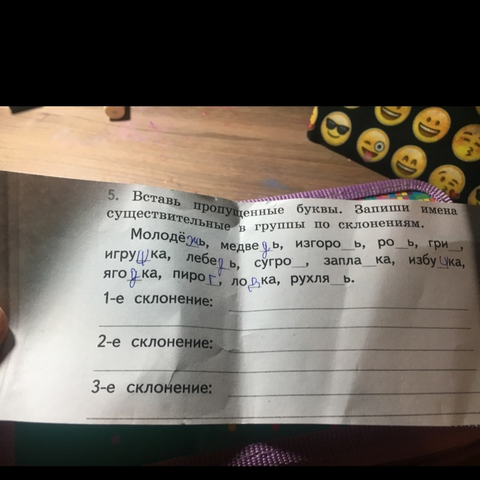 5. Вставь пропущенные буквы. Запиши имена
существительные в группы по склонениям.
Молодёжь, медведь, изгоро_ь, ро_ь, гри_,
игрушка, лебедь, сугро_, запла_ка, избушка,
ягодка, пирог, ло_ка, рухля_ь.
1-е склонение:
2-е склонение:
3-е склонение: